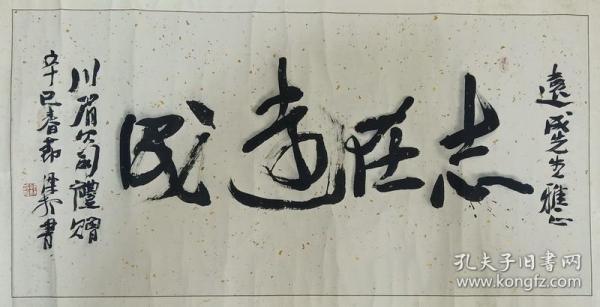 遠成先生雅
志在遠成
川公司禮贈
辛巳春節書
孔夫子旧书网
www.kongfz.com